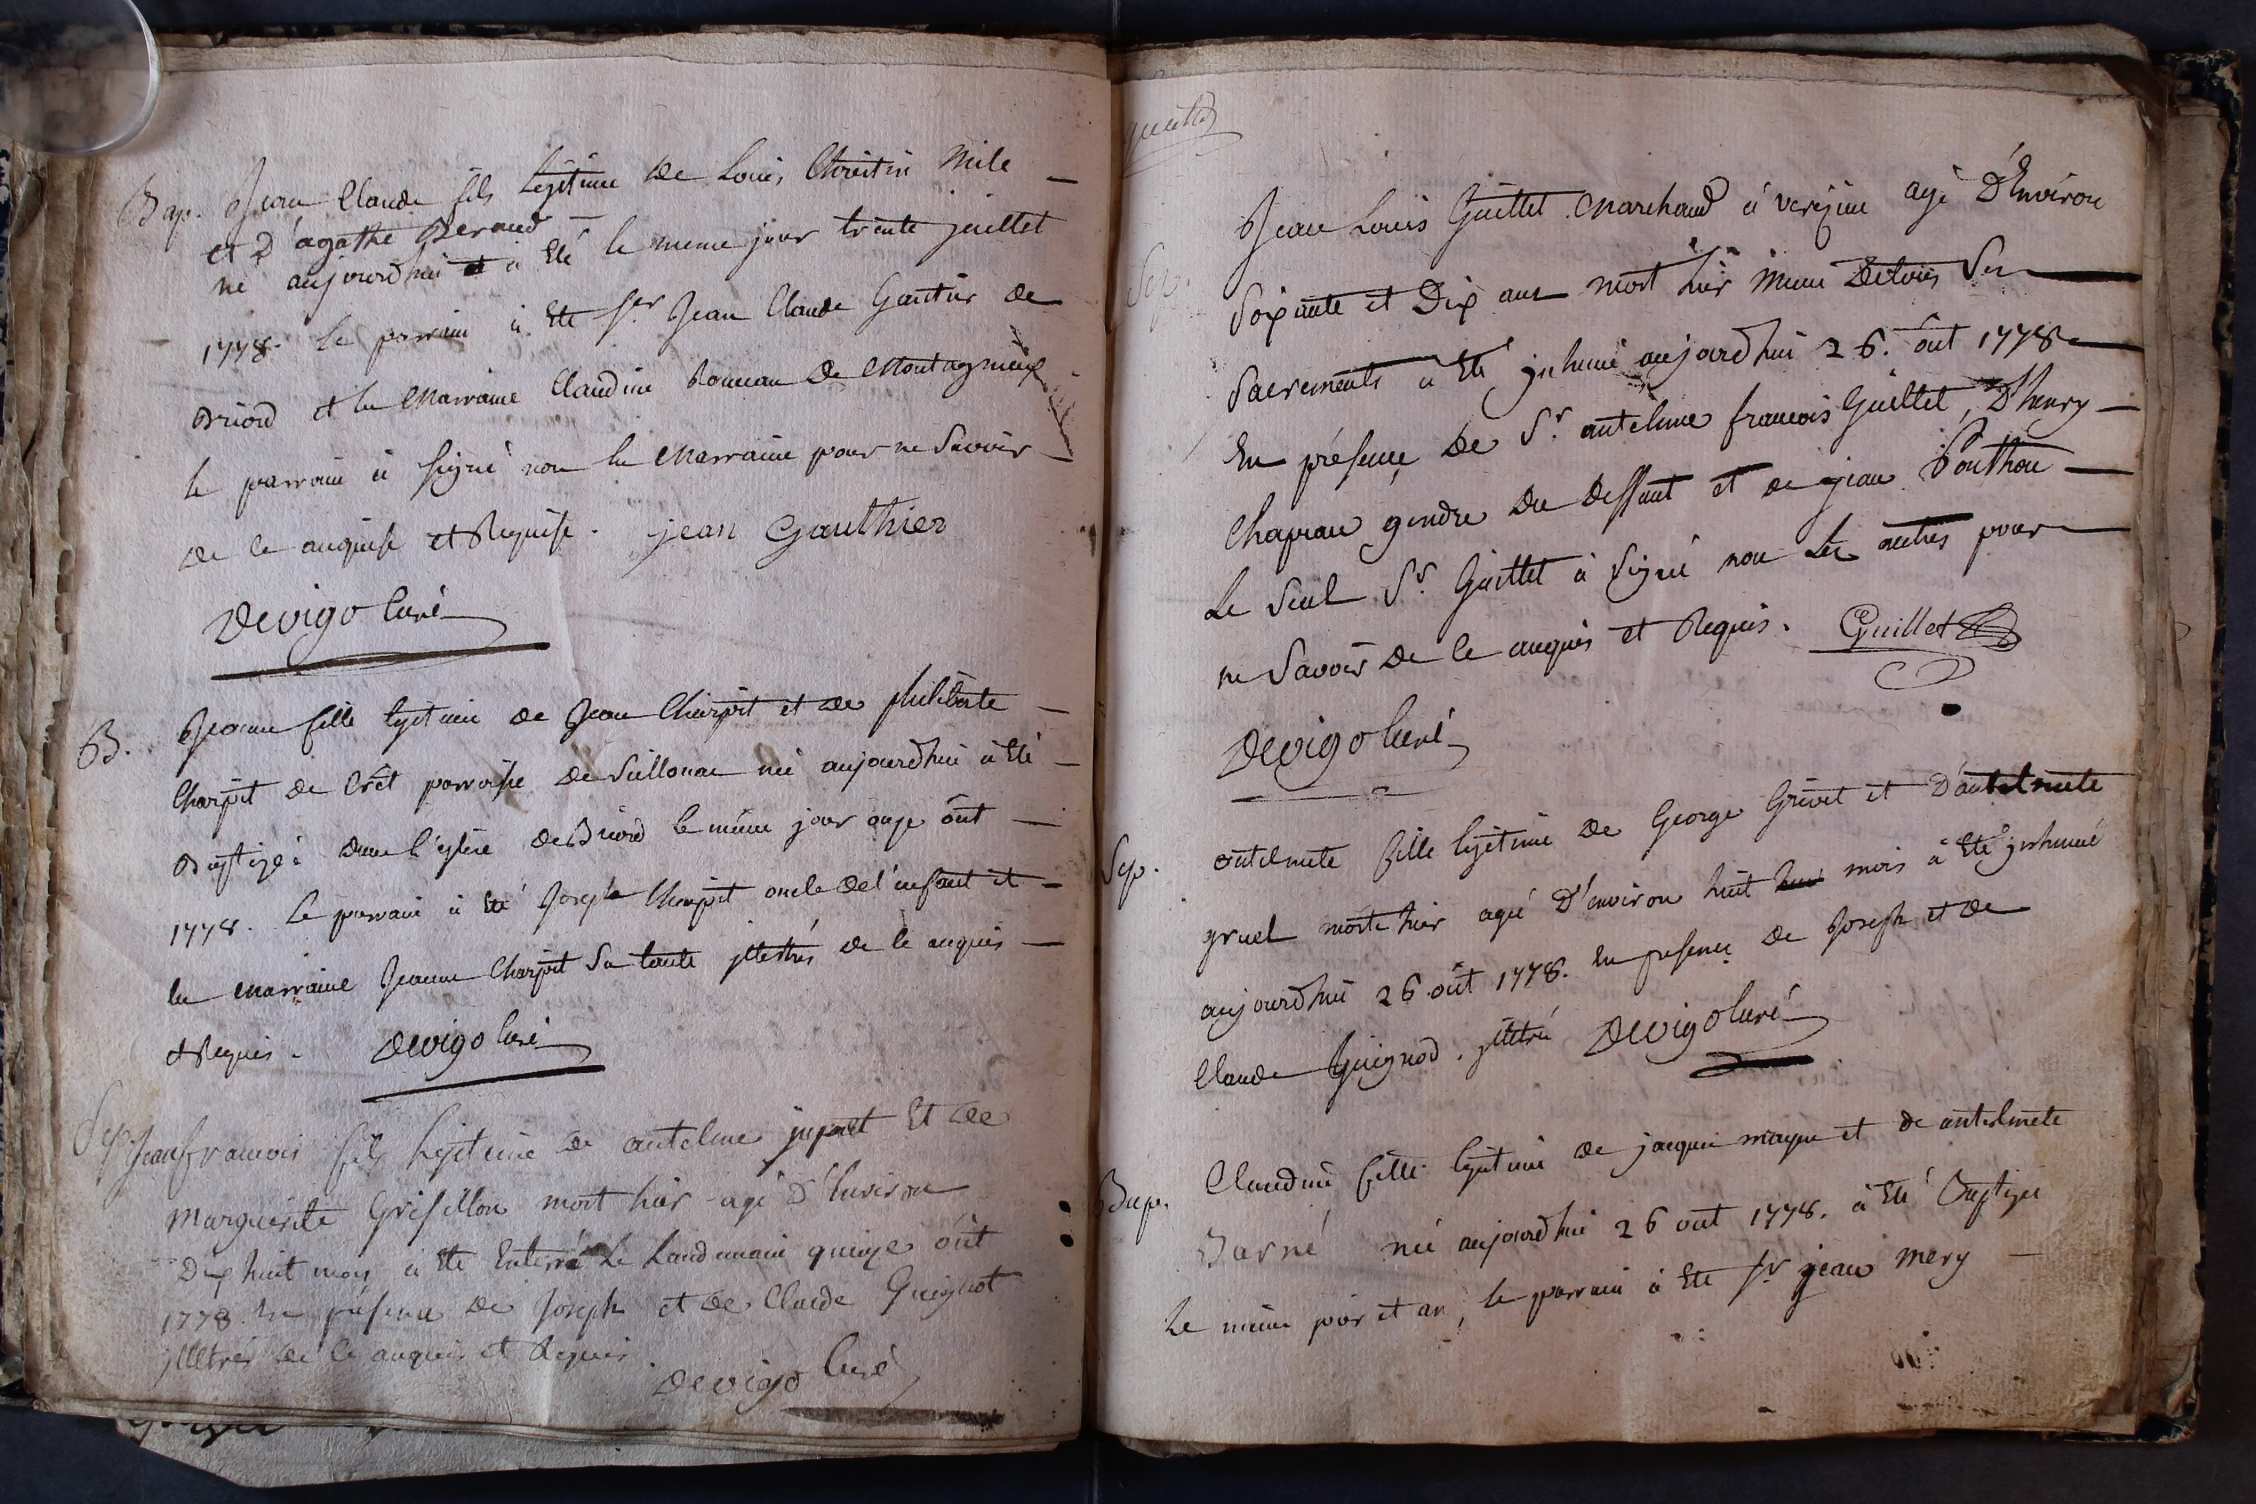 Bap. Jean Claude fils legitime de Louis Chrestin Mile
et D'agathe Beraud
né aujourdhui à Eté le meme jour trente juillet
1778. le parrain à Eté Sr Jean Claude Gautier de
Briord et la Marraine Claudine bonneau de Montagnieux
le parrain à signé non la Marraine pour ne Savoir
de ce anquise et Requise. jean Gauthier
Devigo Curé
B. Jeanne fille legitime de Jean Charpit et de philiberte
Charpit de Crêt parroisse de Sillonac née aujourdhui à Eté
Baptizée dans l'eglise de Briord le même jour onze oût
1778. Le parrain à Eté Joseph Charpit oncle de l'enfant et
la Marraine Jeanne Charpit Sa tante jlletrés de ce anquis
et Requis. Devigo Curé
Sep. Jean francois fils legitime de antelme jupret Et de
Marguerite Grisillon mort hier agé D'Environ
Dix huit mois à Eté Enterré Le Landemain quinze oût
1778 En présence de Joseph et de Claude Guignot
jlletrés de ce anquis et Requis
Devigo Curé
Sep. Jean Louis Guillet Marchand à verizieu agé D'Environ
Soixante et Dix ans mort hier Muni De tous Ses
Sacrements à Eté jnhumé aujourdhui 26. oût 1778
En présence de Sr. antelme francois Guillet, D'henry
Chapeau gendre Du Deffunt et de jean Ponthon
Le Seul Sr. Guillet à Signé non Les autres pour
ne Savoir De ce anquis et Requis. Guillet
Devigo Curé
Sep. antelmete fille legitime de George Grivet et D'antelmete
gruel morte hier agé D'environ huit mois à Eté jnhumée
aujourdhui 26 oût 1778. En presence de Joseph et de
Claude Guignod. jlletré Devigo Curé
Bap. Claudine fille legitime de jacque mayne et de antelmete
Barné née aujourdhui 26 out 1778. à Eté Baptizee
Le même jour et an, le parrain à Eté Sr jean mery